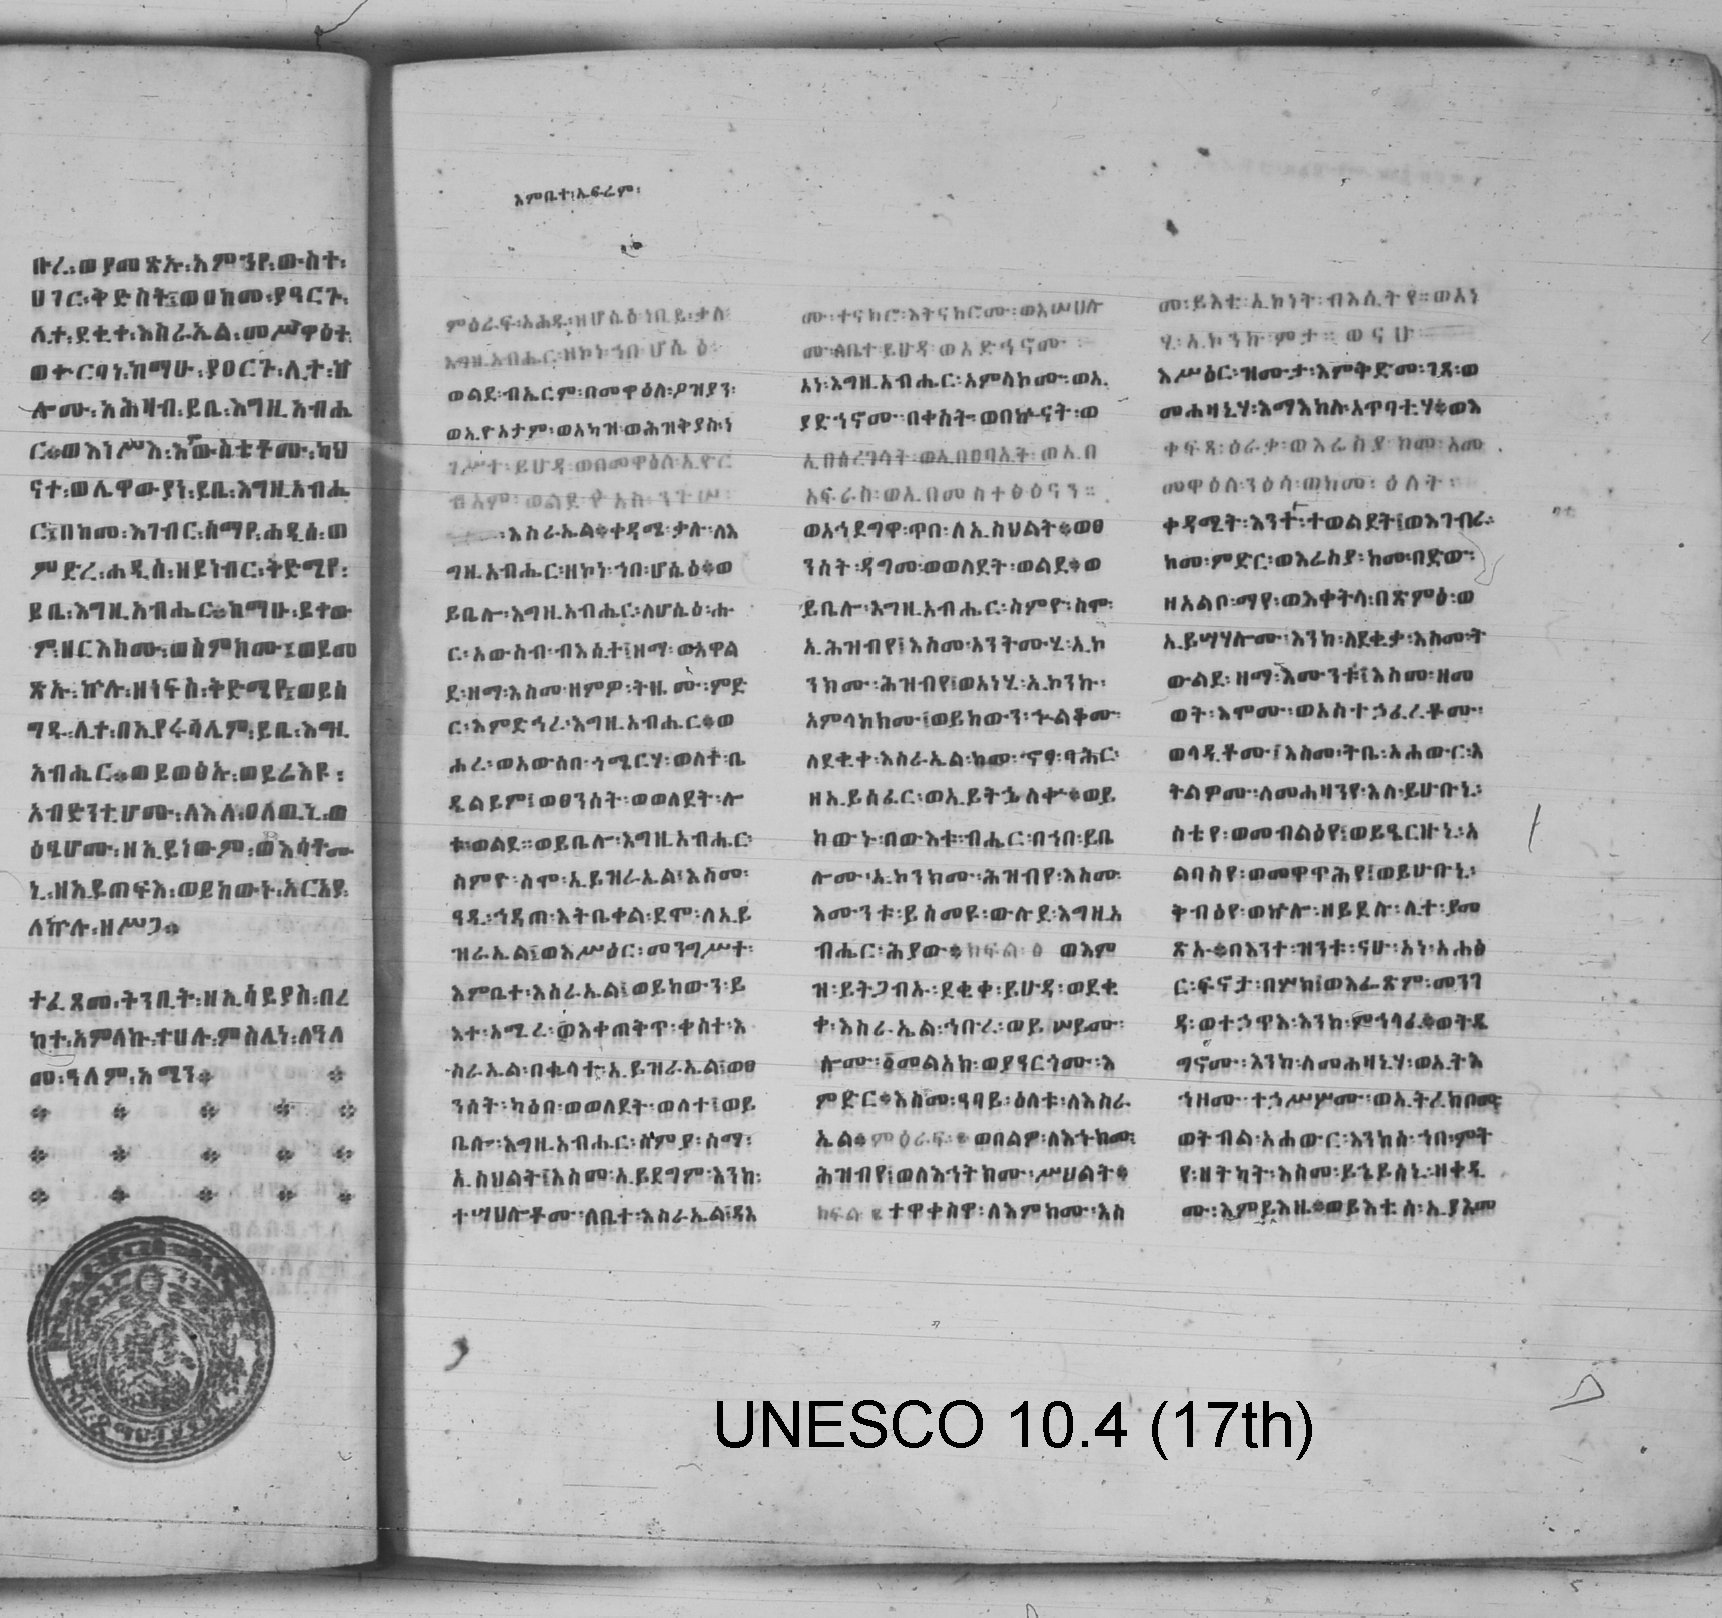 ቡረ፡ወያመጽኡ፡እምኀየ፡ውስተ፡
ሀገር፡ቅድስት፤ወበከመ፡ያዓርጉ፡
ሊተ፡ደቂቀ፡እስራኤል፡መሥዋዕተ
ወቍርባነ፡ከማሁ፡ያዐርጉ፡ሊተ፡ኵ
ሎሙ፡አሕዛብ፡ይቤ፡እግዚአብሔ
ር፨ወእነሥእ፡እምውስቴቶሙ፡ካህ
ናተ፡ወሌዋውያነ፡ይቤ፡እግዚአብሔ
ር፤በከመ፡እገብር፡ሰማየ፡ሐዲሰ፡ወ
ምድረ፡ሐዲስ፡ዘይነብር፡ቅድሜየ፡
ይቤ፡እግዚአብሔር፨ከማሁ፡ይቀው
ም፡ዘርእክሙ፡ወስምክሙ፤ወይመ
ጽኡ፡ኵሉ፡ዘነፍስ፡ቅድሜየ፤ወይሰ
ግዱ፡ሊተ፡በኢየሩሳሌም፡ይቤ፡እግዚ
አብሔር፨ወይወፅኡ፡ወይሬእዩ፡
አብድንቲሆሙ፡ለእለ፡ዐለዉኒ፡ወ
ዕፄሆሙ፡ዘኢይነውም፡ወእሳቶሙ
ኒ፡ዘኢይጠፍእ፡ወይከውት፡አርአያ፡
ለኵሉ፡ዘሥጋ፨
ተፈጸመ፡ትንቢት፡ዘኢሳይያስ፡በረ
ከተ፡አምላኩ፡ተሀሉ፡ምስሌነ፡ለዓለ
መ፡ዓለም፡አሜን፨
እምቤተ፡ኤፍሬም፡
ምዕራፍ፡አሐዱ፡ዘሆሴዕ፡ነቢይ፡ቃለ፡
እግዚአብሔር፡ዘኮነ፡ኀበ፡ሆሴዕ፡
ወልደ፡ብኤርም፡በመዋዕለ፡ዖዝያን፡
ወኢዮአታም፡ወአካዝ፡ወሕዝቅያስ፡ነ
ገሥተ፡ይሁዳ፡ወበመዋዕለ፡ኢዮር
ብአም፡ወልደ፡ዮአስ፡ንጉሠ፡
እስራኤል፨ቀዳሜ፡ቃሉ፡ለእ
ግዚአብሔር፡ዘኮነ፡ኀበ፡ሆሴዕ፨ወ
ይቤሎ፡እግዚአብሔር፡ለሆሴዕ፡ሑ
ር፡አውስብ፡ብእሲተ፤ዘማ፡ወአዋል
ደ፡ዘማ፡እስመ፡ዘምዎ፡ትዜሙ፡ምድ
ር፡እምድኅረ፡እግዚአብሔር፨ወ
ሐረ፡ወአውሰበ፡ጎሜርሃ፡ወለተ፡ቤ
ዴልይም፤ወፀንሰት፡ወወለደት፡ሎ
ቱ፡ወልደ፡፡ወይቤሎ፡እግዚአብሔር፡
ስምዮ፡ስሞ፡ኢይዝራኤል፤እስመ፡
ዓዲ፡ኅዳጠ፡እትቤቀል፡ደሞ፡ለኢይ
ዝራኤል፤ወእሥዕር፡መንግሥተ፡
እምቤተ፡እስራኤል፤ወይከውን፡ይ
እተ፡አሚረ፡ወእቀጠቅጥ፡ቀስተ፡እ
ስራኤል፡በቈላተ፡ኢይዝራኤል፤ወፀ
ንሰት፡ካዕበ፡ወወለደት፡ወለተ፤ወይ
ቤሎ፡እግዚአብሔር፡ስምያ፡ስማ፡
ኢስህልት፤እስመ፡ኢይደግም፡እንከ፡
ተሣህሎቶሙ፡ለቤተ፡እስራኤል፤ዳእ
ሙ፡ተናክሮ፡እትናከሮሙ፡ወእሠሀሎ
ሙ፡ለቤተ፡ይሁዳ፡ወአድኅኖሙ፡
አነ፡እግዚአብሔር፡አምላኮሙ፡ወኢ
ያድኅኖሙ፡በቀስት፡ወበኵናት፡ወ
ኢበሰረገላት፡ወኢበፀባኢት፡ወኢበ
አፍራስ፡ወኢበመስተፅዕናን፡፡
ወአኅደገዋ፡ጥበ፡ለኢስህልት፨ወፀ
ንሰት፡ዳግመ፡ወወለደት፡ወልደ፨ወ
ይቤሎ፡እግዚአብሔር፡ስምዮ፡ስሞ፡
ኢሕዝብየ፤እስመ፡አንትሙሂ፡ኢኮ
ንክሙ፡ሕዝብየ፤ወአነሂ፡ኢኮንኩ፡
አምላክክሙ፤ወይከውን፡ኍልቆሙ፡
ለደቂቀ፡እስራኤል፡ከመ፡ኆፃ፡ባሕር፡
ዘኢይሰፈር፡ወኢይትኌለቍ፨ወይ
ከውኑ፡በውእቱ፡ብሔር፡በኀበ፡ይቤ
ሎሙ፡ኢኮንክሙ፡ሕዝብየ፡እስመ፡
እሙንቱ፡ይሰመዩ፡ውሉደ፡እግዚአ
ብሔር፡ሕያው፨ክፍል፡፭ ወእም
ዝ፡ይትጋብኡ፡ደቂቀ፡ይሁዳ፡ወደቂ
ቀ፡እስራኤል፡ኅቡረ፡ወይሠይሙ፡
ሎሙ፡፩መልአክ፡ወያዓርጎሙ፡እ
ምድር፨እስመ፡ዓባይ፡ዕለቱ፡ለእስራ
ኤል፨ምዕራፍ፡፪ ወበልዎ፡ለእኁክሙ፡
ሕዝብየ፤ወለእኅትክሙ፡ሥህልት፨
ክፍል ተዋቀስዋ፡ለእምክሙ፡እስ
መ፡ይእቲ፡ኢኮነት፡ብእሲትየ፡፡ወአነ
ሂ፡ኢኮንኩ፡ምታ፡፡ወናሁ
እሥዕር፡ዝሙታ፡እምቅድመ፡ገጻ፡ወ
መሐዛኒሃ፡እማእከለ፡አጥባቲሃ፨ወእ
ቀፍጻ፡ዕራቃ፡ወእሬስያ፡ከመ፡አመ
መዋዕለ፡ንዕሳ፡ወከመ፡ዕለት፡
ቀዳሚት፡እንተ፡ተወልደት፤ወእገብራ፡
ከመ፡ምድር፡ወእሬስያ፡ከመ፡በድው፡
ዘአልቦ፡ማየ፡ወእቀትላ፡በጽምዕ፡ወ
ኢይሣሃሎሙ፡እንከ፡ለደቂቃ፡እስመ፡ት
ውልደ፡ዘማ፡እሙንቱ፤እስመ፡ዘመ
ወት፡እሞሙ፡ወአስተኃፈረቶሙ፡
ወላዲቶሙ፤እስመ፡ትቤ፡አሐውር፡እ
ትልዎሙ፡ለመሐዛንየ፡እለ፡ይሁቡኒ፡
ስቴየ፡ወመብልዕየ፤ወይዔርዙኒ፡አ
ልባስየ፡ወመዋጥሕየ፤ወይሁቡኒ፡
ቅብዕየ፡ወኵሎ፡ዘይደሉ፡ሊተ፡ያመ
ጽኡ፨በእንተ፡ዝንቱ፡ናሁ፡አነ፡አሐፅ
ር፡ፍኖታ፡በሦክ፤ወእፈጽም፡መንገ
ዳ፡ወተኃጥእ፡እንከ፡ምኅላፈ፨ወትዴ
ግኖሙ፡እንከ፡ለመሐዛኒሃ፡ወኢትእ
ኅዘሙ፡ተኃሥሦሙ፡ወኢትረክቦሙ
ወትብል፡አሐውር፡እንከሰ፡ኀበ፡ምት
የ፡ዘትካት፡እስመ፡ይኄይሰኒ፡ዘቀዲ
ሙ፡እምይእዜ፨ወይእቲሰ፡ኢያእመ
UNESCO 10.4 (17th)